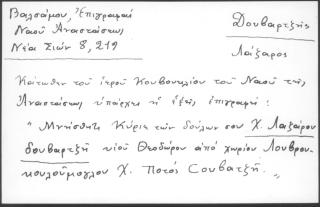 Βαλσάμου, Ἐπιγραφαί
Ναοῦ Ἀναστάσεως
Νέα Σιών 8, 219
Δουβαρτζῆς
Λάζαρος
Κάτωθεν τοῦ ἱεροῦ Κουβουκλίου τοῦ Ναοῦ τῆς
Ἀναστάσεως ὑπάρχει ἡ ἑξῆς ἐπιγραφή :
" Μνήσθητι Κύριε τῶν δούλων σου Χ. Λαζάρου
δουβαρτζῆ υἱοῦ Θεοδώρου ἀπό χωρίου Λουβρου-
κουλούμογλου Χ. Ποτός Σουβατζῆ. "